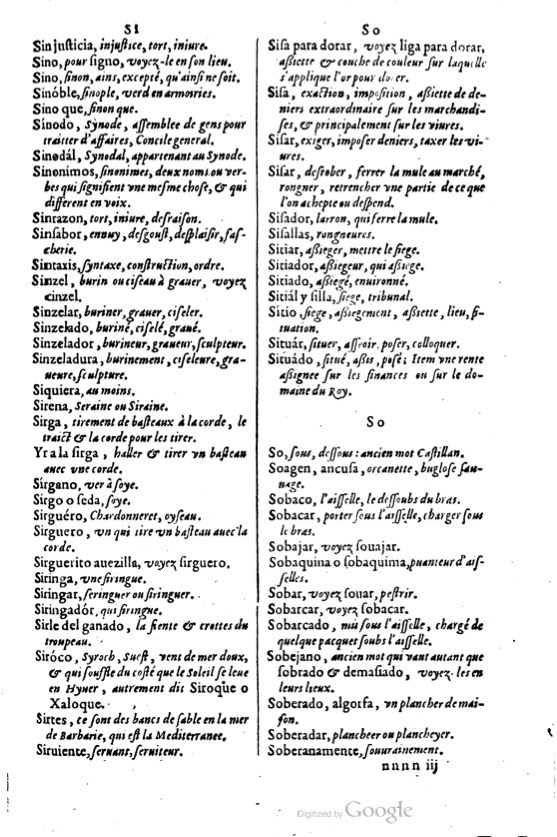 SI
Sinjusticia, injustice, tort, iniure.
Sino, pour signo, voyez-le en son lieu.
Sino, sinon, ains, excepté, qu'ainsi ne soit.
Sinóble, sinople, verd en armoiries.
Sino que, sinon que.
Sínodo, Synode, assemblee de gens pour
traitter d'affaires, Concile general.
Sinodál, Synodal, appartenant au Synode.
Sinonimos, sinonimes, deux noms ou ver-
bes qui signifient vne mesme chose, & qui
different en voix.
Sinrazon, tort, iniure, desraison.
Sinsabor, ennuy, desgoust, desplaisir, fas-
cherie.
Sintaxis, syntaxe, construction, ordre.
Sinzel, burin ou ciseau à grauer, voyez
cinzel.
Sinzelar, buriner, grauer, ciseler.
Sinzelado, buriné, ciselé, graué.
Sinzelador, burineur, graueur, sculpteur.
Sinzeladura, burinement, ciseleure, gra-
ueure, sculpture.
Siquiera, au moins.
Sirena, Seraine ou Siraine.
Sirga, tirement de basteaux à la corde, le
traict & la corde pour les tirer.
Yr a la sirga, haller & tirer vn basteau
auec vne corde.
Sirgano, ver à soye.
Sirgo o seda, soye.
Sirguéro, Chardonneret, oyseau.
Sirguero, vn qui tire vn basteau auec la
corde.
Sirguerito auezilla, voyez sirguero.
Siringa, vne siringue.
Siringar, seringuer ou siringuer.
Siringadór, qui siringue.
Sirle del ganado, la fiente & crottes du
troupeau.
Siróco, Syroch, Suest, vent de mer doux,
& qui souffle du costé que le Soleil se leue
en Hyuer, autrement dit Siroque o
Xaloque.
Sirtes, ce sont des bancs de sable en la mer
de Barbarie, qui est la Mediterranee.
Siruiente, seruant, seruiteur.
So
Sisa para dorar, voyez liga para dorar,
assiette & couche de couleur sur laquelle
s'applique l'or pour dorer.
Sisa, exaction, imposition, assiette de de-
niers extraordinaire sur les marchandi-
ses, & principalement sur les viures.
Sisar, exiger, imposer deniers, taxer les vi-
ures.
Sisar, desrober, ferrer la mule au marché,
rongner, retrencher vne partie de ce que
l'on achepte ou despend.
Sisador, larron, qui ferre la mule.
Sisallas, rongneures.
Sitiar, assieger, mettre le siege.
Sitiador, assiegeur, qui assiege.
Sitiado, assiegé, enuironné.
Sitiál y silla, siege, tribunal.
Sitio, siege, assiegement, assiette, lieu, si-
tuation.
Situár, situer, asseoir, poser, colloquer.
Situádo, situé, assis, posé; Item vne rente
assignee sur les finances ou sur le do-
maine du Roy.
So
So, sous, dessous: ancien mot Castillan.
Soagen, ancusa, orcanette, buglose sau-
uage.
Sobaco, l'aisselle, le dessoubs du bras.
Sobacar, porter sous l'aisselle, charger sous
le bras.
Sobajar, voyez souajar.
Sobaquina o sobaquima, puanteur d'ais-
selles.
Sobar, voyez souar, pestrir.
Sobarcar, voyez sobacar.
Sobarcado, mis sous l'aisselle, chargé de
quelque pacquet soubs l'aisselle.
Sobejano, ancien mot qui vaut autant que
sobrado & demasiado, voyez-les en
leurs lieux.
Soberado, algorfa, vn plancher de mai-
son.
Soberadar, plancheer ou plancheyer.
Soberanamente, souurainement.
nnnn iij
Digitized by Google